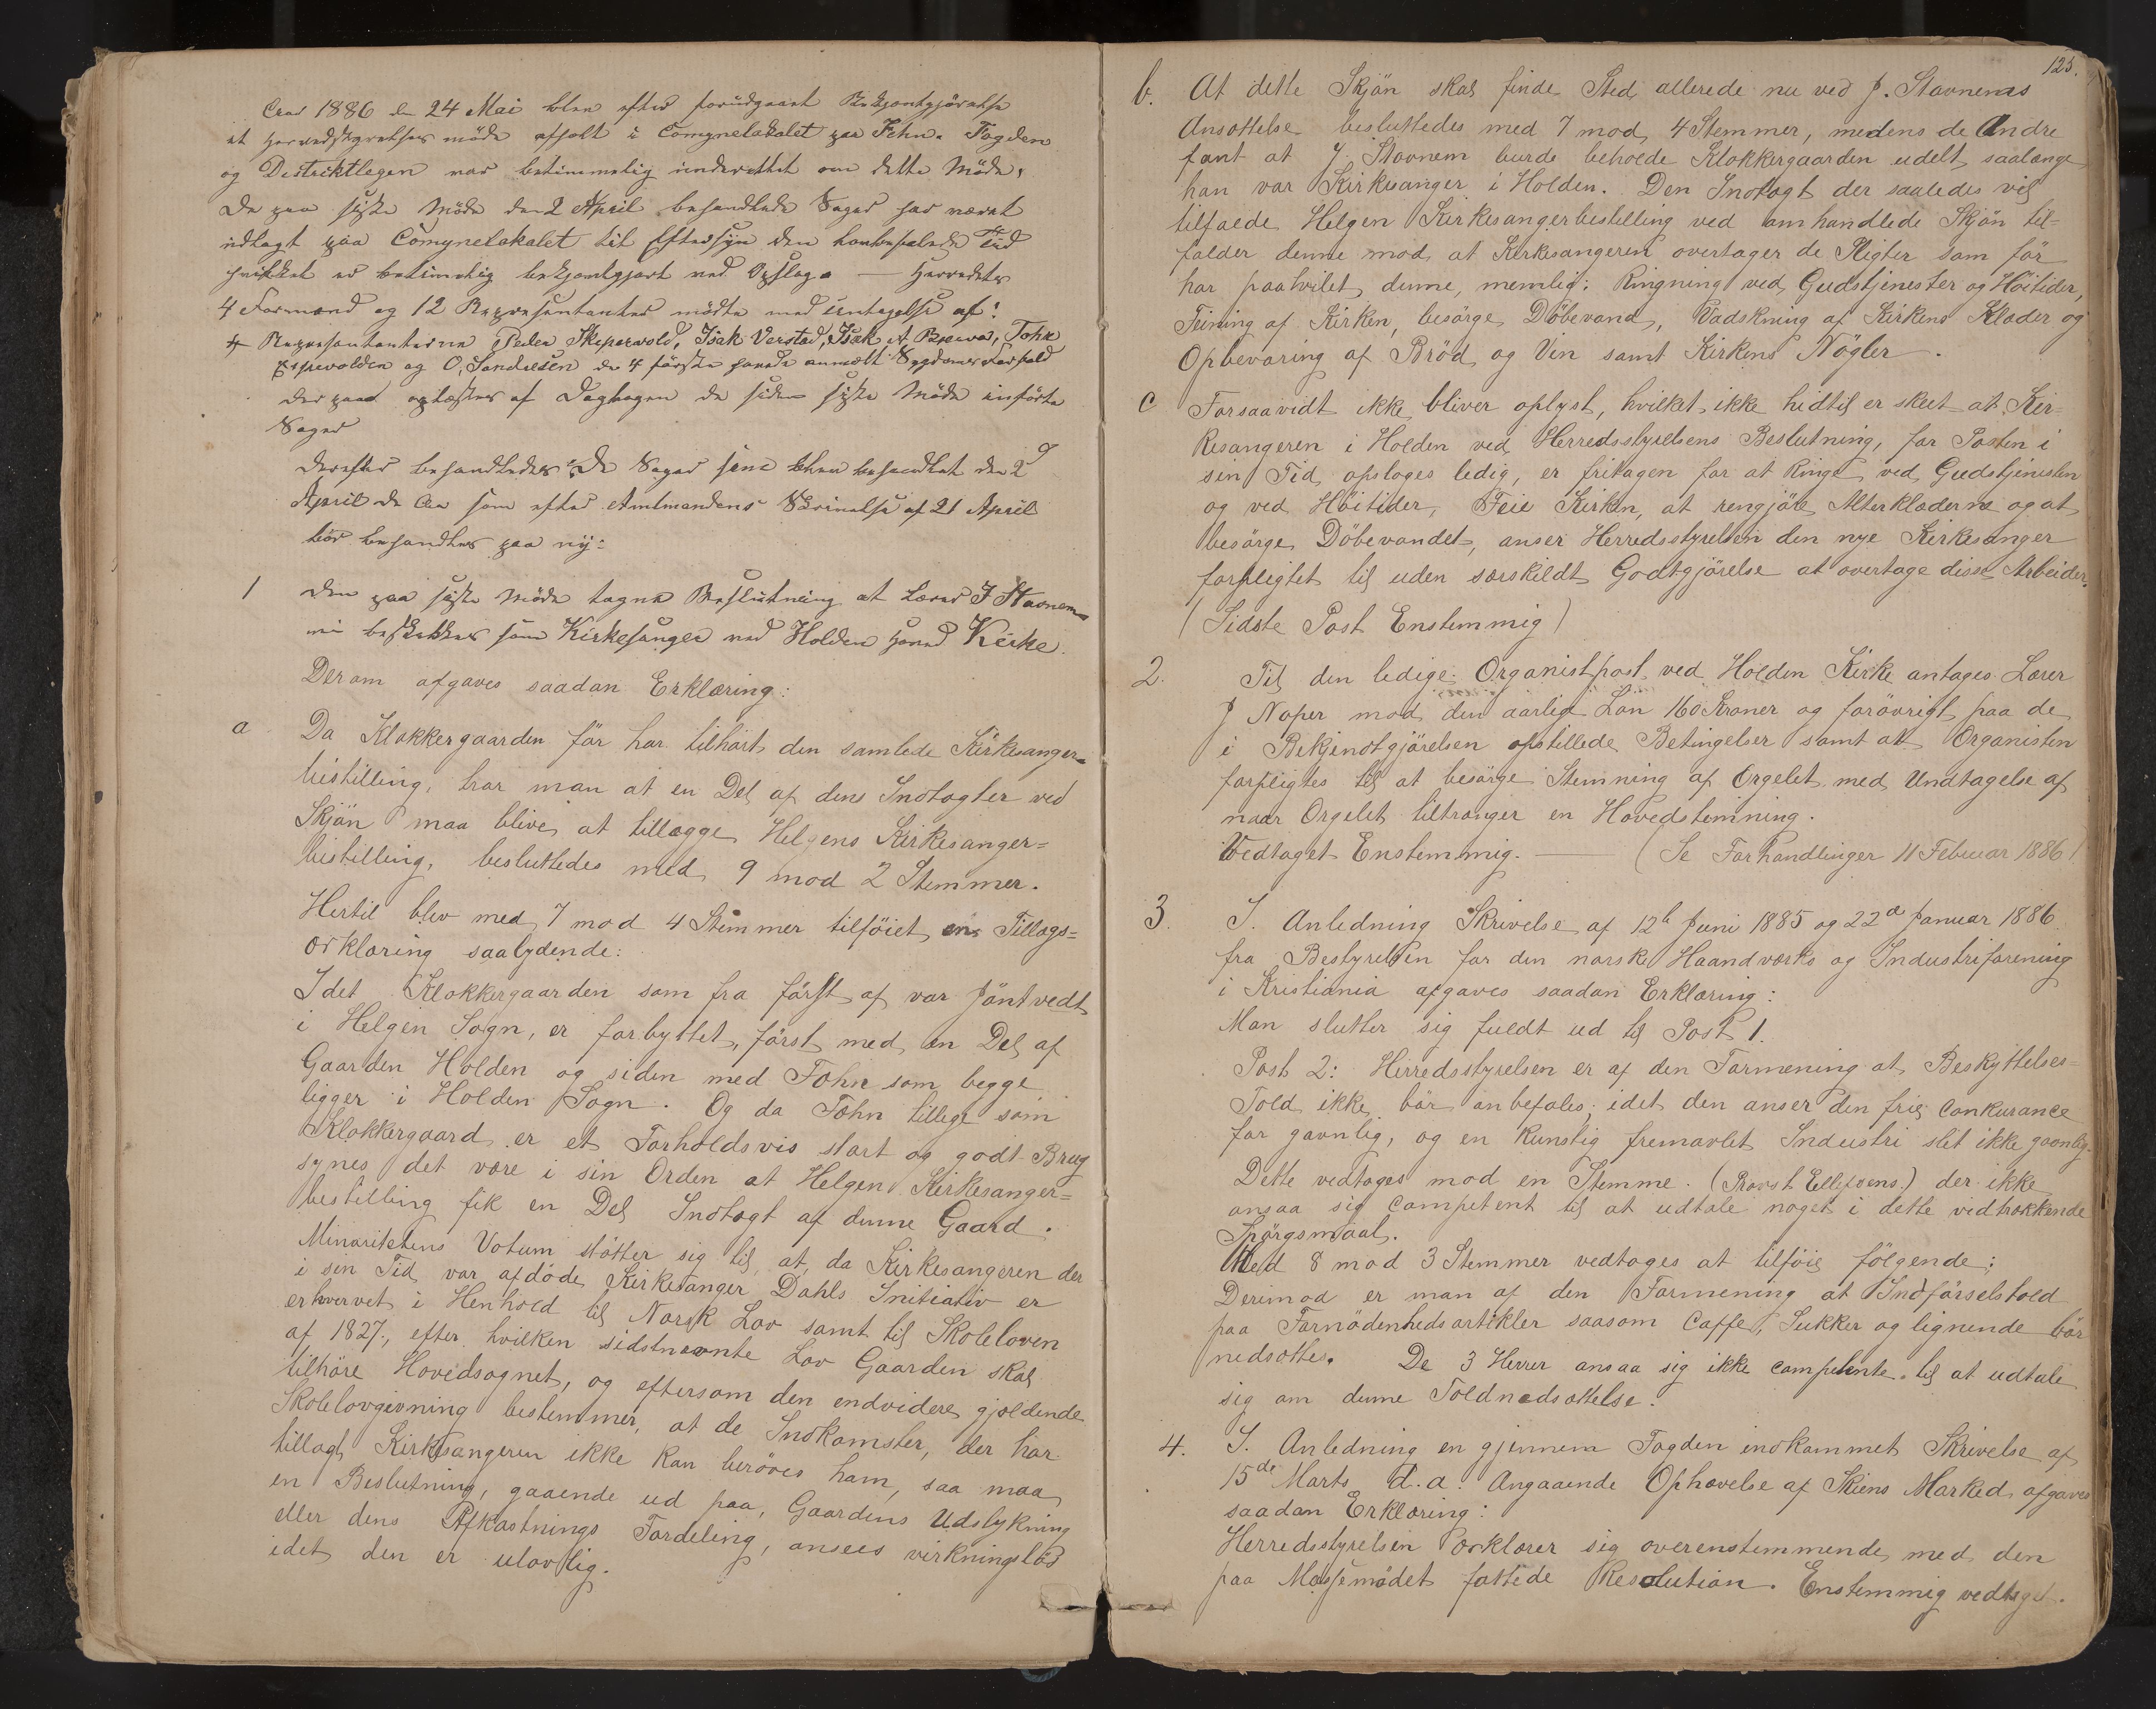 Aar 1886 den 24 Mai blev efter forudgaaet Bekjentgjørelse
et Herredsstyrelses møde afholt i Comynelokalet paa Fehn. Fogden
og Distriktlægen var betimmelig underrettet om dette Møde,
De paa siste Møde den 2 April behandlede Sager har været
udlagt paa Comynelokalet til Eftersyn den lovbefalede Tid
hvilket er betimelig bekjentgjort ved Opslag. — Herredets
4 Formænd og 12 Representanter mødte med untagelse af:
4 Representanterne Peder Skeperwold, Isak Verstad, Isak A. Tohn
Espevolden og O. Sandersen de 4 første havde anmelt Sygdomsforfald
Derpaa oplæstes af Dagbogen de siden siste Møde indførte
Sager
Derefter behandledes: De Sager som blev behandlet den 2d
April d. Aa som efter Amtmandens Skrivelse af 21 April
bør behandles paa ny:
1 Den paa siste Møde tagne Beslutning at Lærer J Stavnem
beskikkes som Kirkesanger ved Holden Hoved Kirke.
Derom afgaves saadan Erklæring:
a Da Klokkergaarden før har tilhørt den samlede Kirkesanger-
bestilling, tror man at en Del af dens Indtægter ved
Skjøn maa blive at tillægge Helgens Kirkesanger=
bestilling, besluttedes med 9 mod 2 Stemmer.
Hertil blev med 7 mod 4 Stemmer tilføiet en Tillægs=
ærklæring saalydende:
Idet Klokkergaarden som fra først af var Jøntvedt
i Helgen Sogn, er forbyttet, først med en Del af
Gaarden Holden og siden med Fæhn som begge
ligger i Holden Sogn. Og da Fæhn tillige som
Klokkergaard er et Forholdsvis stort og godt Brug
synes det være i sin Orden at Helgen Kirkesanger=
bestilling fik en Del Indtægt af denne Gaard.
Minoritetens Votum støtter sig til, at, da Kirkesangeren der
i sin Tid var afdøde Kirkesanger Dahls Initiativ er
erhvervet i Henhold til Norsk Lov samt til Skoleloven
af 1827., efter hvilken sidstnævnte Lov Gaarden skal
tilhøre Hovedsognet, og eftersom den endvidere gjældende
Skolelovgivning bestemmer, at de Indkomster, der har
tillagt Kirkesangeren ikke kan berøves ham, saa maa
en Beslutning, gaaende ud paa, Gaardens Udstykning
eller dens Afkastnings Fordeling, ansees virkningsløs
idet den er ulovlig.
125.
b. At dette Skjøn skal finde Sted allerede nu ved J. Stavnems
Ansættelse besluttedes med 7 mod 4 Stemmer, medens de Andre
fant at J. Stavnem burde beholde Klokkergaarden udelt saalænge
han var Kirkesanger i Holden. Den Indtægt der saaledes vil
tilfalde Helgen Kirkesangerbestilling ved omhandlede Skjøn til=
falder denne mod at Kirkesangeren overtager de Pligter som før
har paahvilet denne, nemlig: Ringning ved Gudstjenester og Høitider,
Feining af Kirken, besørge Døbevand, Vadskning af Kirkens Klæder og
Opbevaring af Brød og Vin samt Kirkens Nøgler.
c Forsaavidt ikke bliver oplyst, hvilket ikke hidtil er skeet at Kir=
kesangeren i Holden ved Herredsstyrelsens Beslutning, før Posten i
sin Tid opsloges ledig, er fritagen for at Ringe ved Gudstjenesten
og ved Høitider, Feie Kirken, at rengjøre Alterklæderne og at
besørge Døbevandet, anser Herredsstyrelsen den nye Kirkesanger
forpligtet til uden særskildt Godtgjørelse at overtage disse Arbeider.
(Sidste Post Enstemmig)
2. Til den ledige Organistpost ved Holden Kirke antages Lærer
J Noper mod den aarlige Løn 160 Kroner og forøvrigt paa de
i Bekjendtgjørelsen opstillede Betingelser samt at Organisten
forpligtes til at besørge Stemning af Orgelet med Undtagelse af
naar Orgelet tiltrænger en Hovedstemning.
Vedtaget Enstemmig. — (Se Forhandlinger 11 Februar 1886)
3. I Anledning Skrivelse af 12te Juni 1885 og 22de Januar 1886
fra Bestyrelsen for den norske Haandværks og Industriforening
i Kristiania afgaves saadan Erklæring:
Man slutter sig fuldt ud til Post 1.
Post 2: Herredsstyrelsen er af den Formening at Beskyttelses=
Told ikke bør anbefales; idet den anser den frie Conkurance
for gavnlig, og en kunstig fremavlet Industri slet ikke gavnlig.
Dette vedtoges mod en Stemme. (Provst Ellefsens) der ikke
ansaa sig Competent til at udtale noget i dette vidtrækkende
Spørgsmaal.
Med 8 mod 3 Stemmer vedtages at tilføie følgende:
Derimod er man af den Formening at Indførselstold
paa Fornødenhedsartikler saasom Caffe, Sukker og lignende bør
nedsættes. De 3 Herrer ansaa sig ikke competente til at udtale
sig om denne Toldnedsættelse.
4. I Anledning en gjennem Fogden indkommet Skrivelse af
15de Marts d. a. Angaaende Ophævelse af Skiens Marked afgaves
saadan Erklæring:
Herredsstyrelsen ærklærer sig overenstemmende med den
paa Massemødet fattede Resolution. Enstemmig vedtaget.